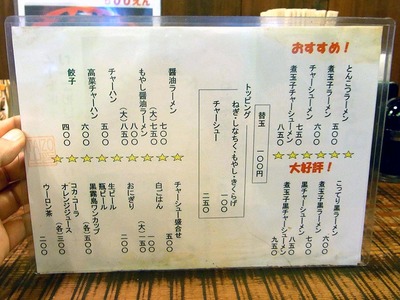 おすすめ!
とんこつラーメン 五〇〇
煮玉子ラーメン 六〇〇
チャーシューメン 七五〇
煮玉子チャーシューメン 八五〇
大好評!
こってり黒ラーメン 六〇〇
煮玉子黒ラーメン 七〇〇
黒チャーシューメン 八五〇
煮玉子黒チャーシューメン 九五〇
替玉 一〇〇円
トッピング
ねぎ・しなちく・もやし・きくらげ 一〇〇
チャーシュー 二五〇
醤油ラーメン
(大)七五〇
もやし醤油ラーメン
(大)八五〇
チャーハン 五〇〇
高菜チャーハン 六〇〇
餃子 四〇〇
チャーシュー盛合せ 五〇〇
白ごはん
(大)
おにぎり
生ビール
瓶ビール
黒霧島ワンカップ
コカ・コーラ
オレンジジュース
ウーロン茶 二〇〇